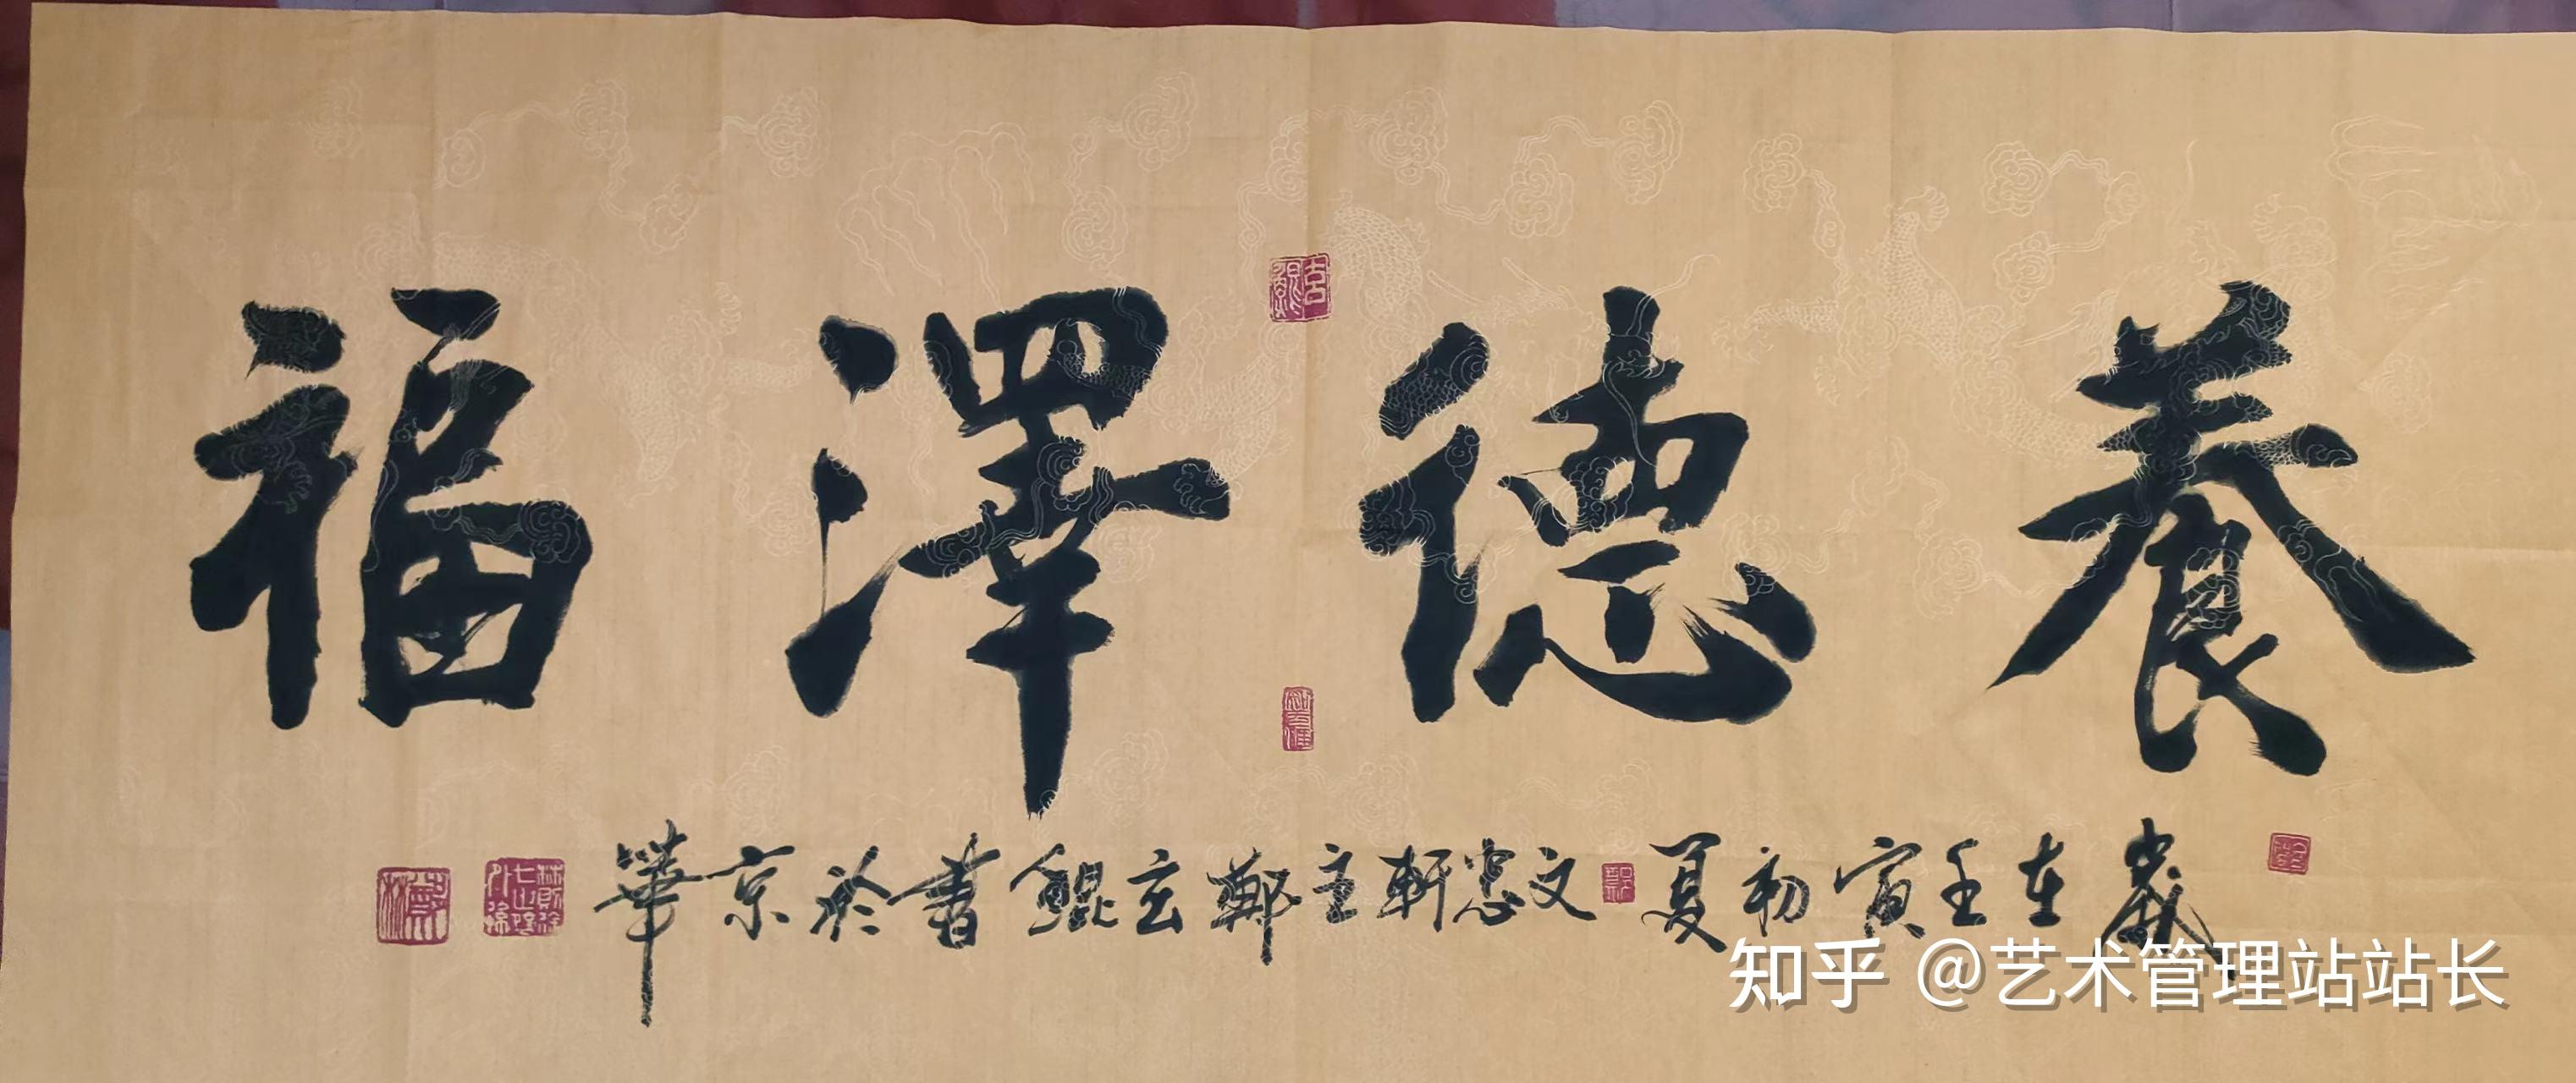 養德澤福
歲在壬寅初夏文忠軒主鄭玄鯤書於京華
知乎 @艺术管理站站长